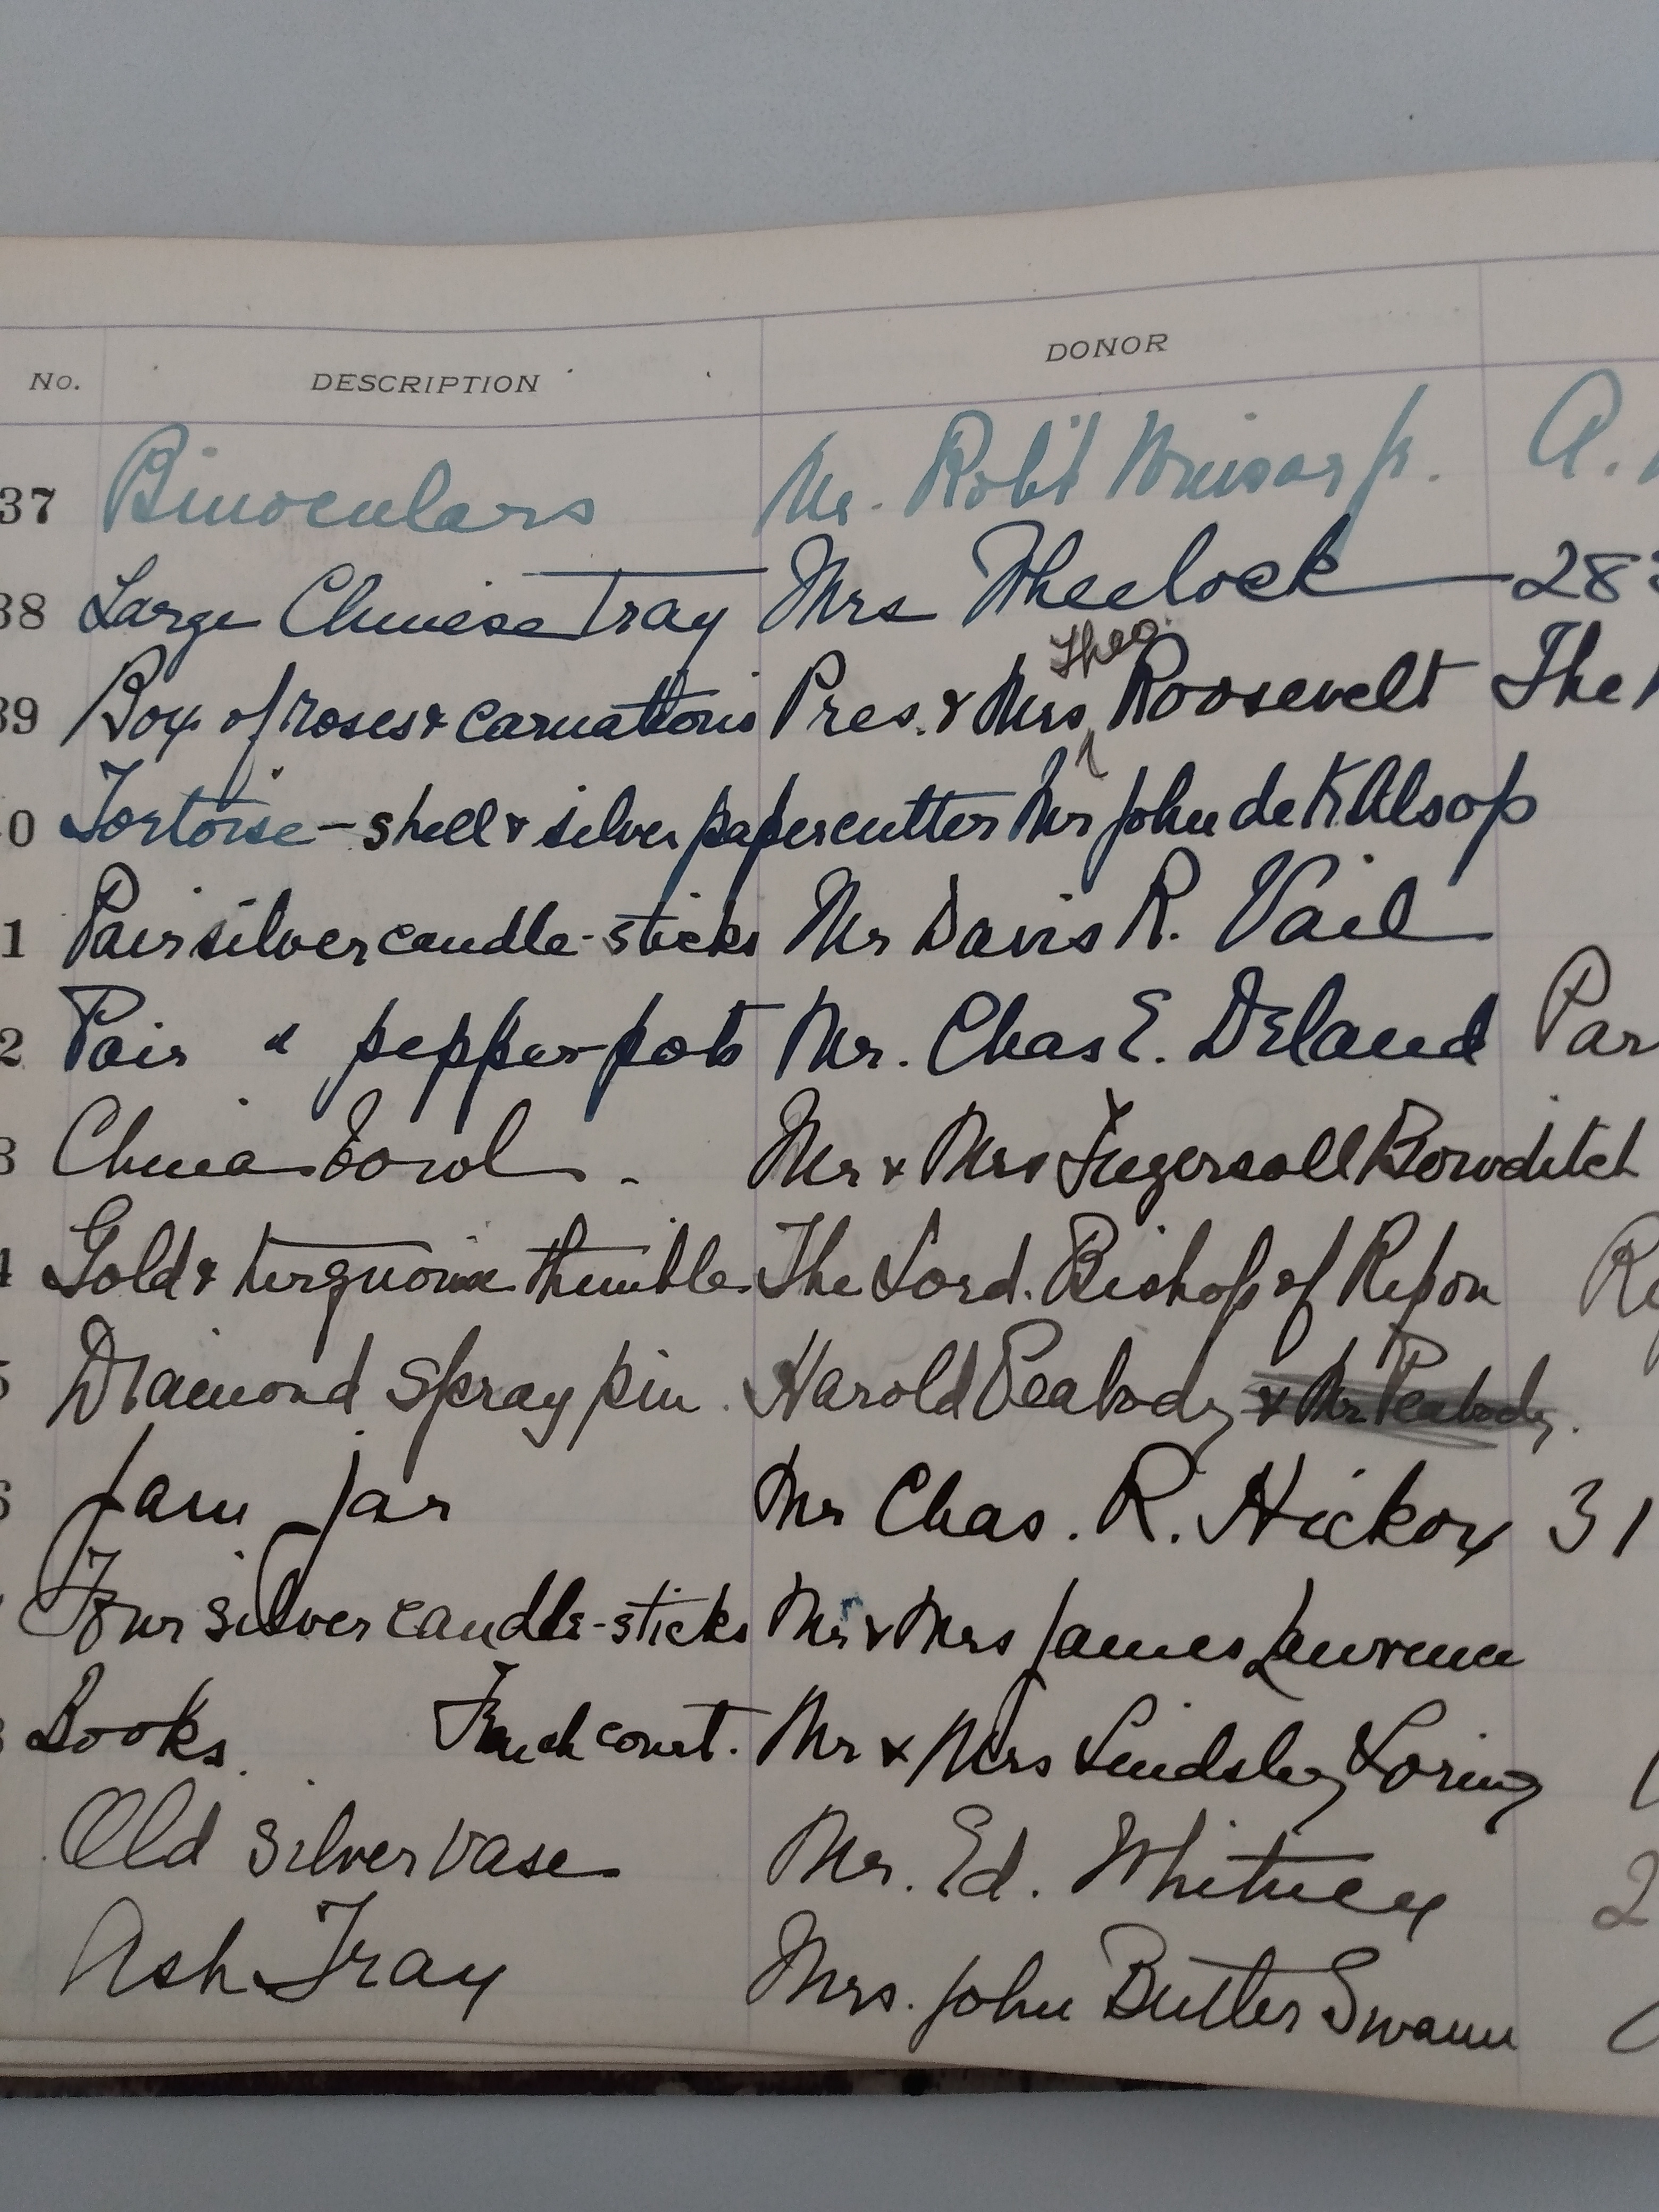 No. DESCRIPTION DONOR
37 Binoculars Mr. Robt Minsor jr. A.
38 Large Chinese Tray Mrs Wheelock 28
Theo.
39 Box of roses & carnations Pres. & Mrs Roosevelt The
0 Tortoise-shell & silver papercutter Mr John de K Alsop
1 Pair silver candle-sticks Mr Davis R. Vail
2 Pair " pepper-pots Mr. Chas E. Deland Par
3 China bowl. Mr & Mrs Ingersoll Bowditch
4 Gold & turquoise thimble. The Lord. Bishop of Ripon
5 Diamond spray pin. Harold Peabody & Mr Peabody.
6 Jam Jar Mr Chas. R. Hickox 31
Four silver candle-sticks Mr & Mrs James Lawrence
Books. French court. Mr & Mrs Lindsley Loring
Old silver vase Mr. Ed. Whitney 2
Ash Tray Mrs. John Butler Swann